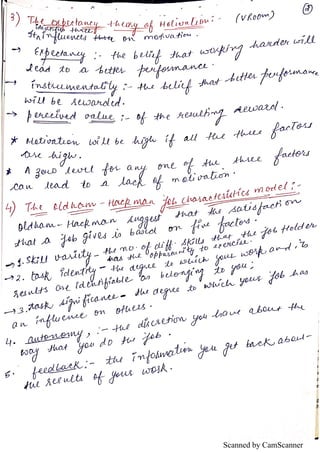 3) The expectancy theory of Motivation:- (VRoom)
influences on motivation.
→ Expectancy :- the belief that working harder will
lead to a better performance.
→ instrumentality :- the belief that better performance
will be rewarded.
→ perceived value :- of the resulting reward.
* Motivation will be high if all the three factors
are high.
* A zero level for any one of the three factors
can lead to a lack of motivation.
4) The oldham - Hackman Job characteristics model :-
oldham - Hackman suggest that the satisfaction
that a job gives is based on five factors.
→ 1. Skill variety - the no. of diff. skills that the job Holder
has the opportunity to exercise.
→ 2. task identity - the degree to which your work and its
results are Identifiable as belonging to you;
→ 3. task significance - the degree to which your job has
an influence on others.
4. autonomy, :- the discretion you have about the
way that you do the job.
5. feedback :- the information you get back about -
the results of your work.
Scanned by CamScanner